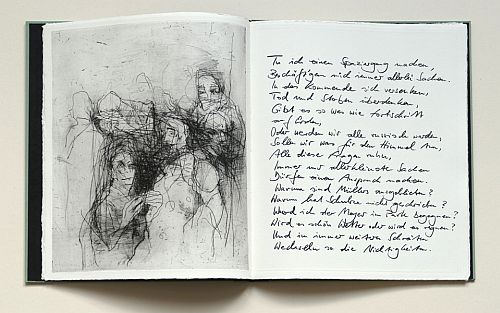 Tu ich einen Spaziergang machen,
Beschäftigen mich immer allerlei Sachen.
In das Kommende sich versenken,
Tod und Sterben überdenken,
Gibt es so was wie Fortschritt
auf Erden,
Oder werden wir alle verrückt werden,
Sollen wir was für den Himmel tun,
Alle diese Fragen ruhn,
Immer nur allerkleinste Sachen
Dürfen einen Anspruch machen.
Warum sind Müllers ausgeblieben?
Warum hat Schulze nicht geschrieben?
Werd ich der Meyer im Parke begegnen?
Wird es schön Wetter oder wird es regnen?
Und im immer weitern Schreiten
Wechseln so die Nichtigkeiten.